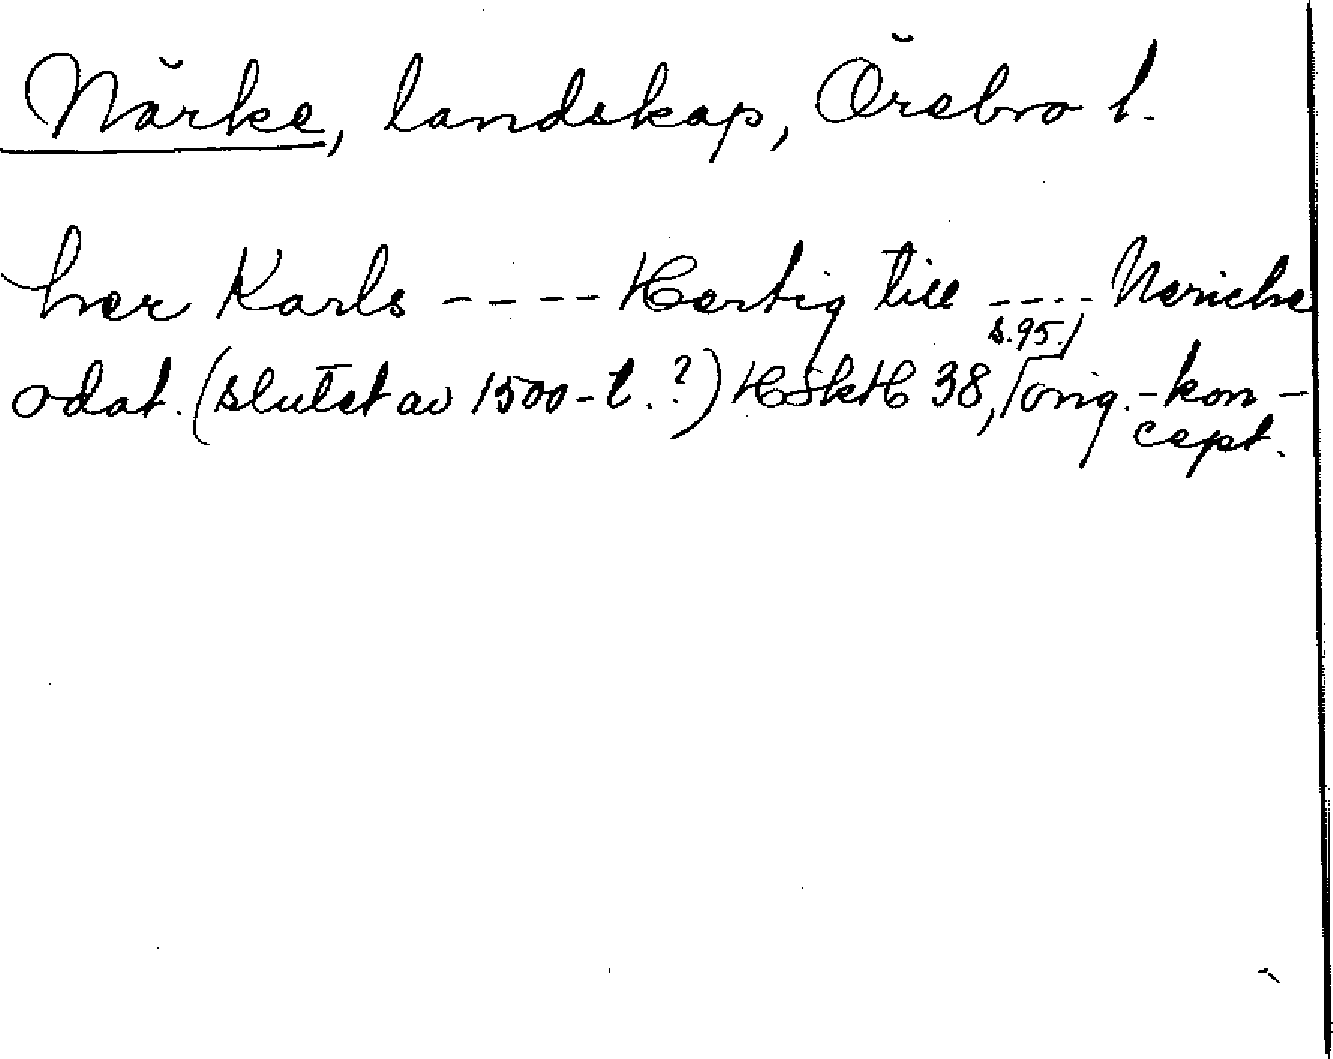 Närke, landskap, Örebro l.
her Karls ---- Hertig till ---- Neriche
odat. (slutet av 1500-t.?) HSkH 38, s.95, orig.-kon-
cept.